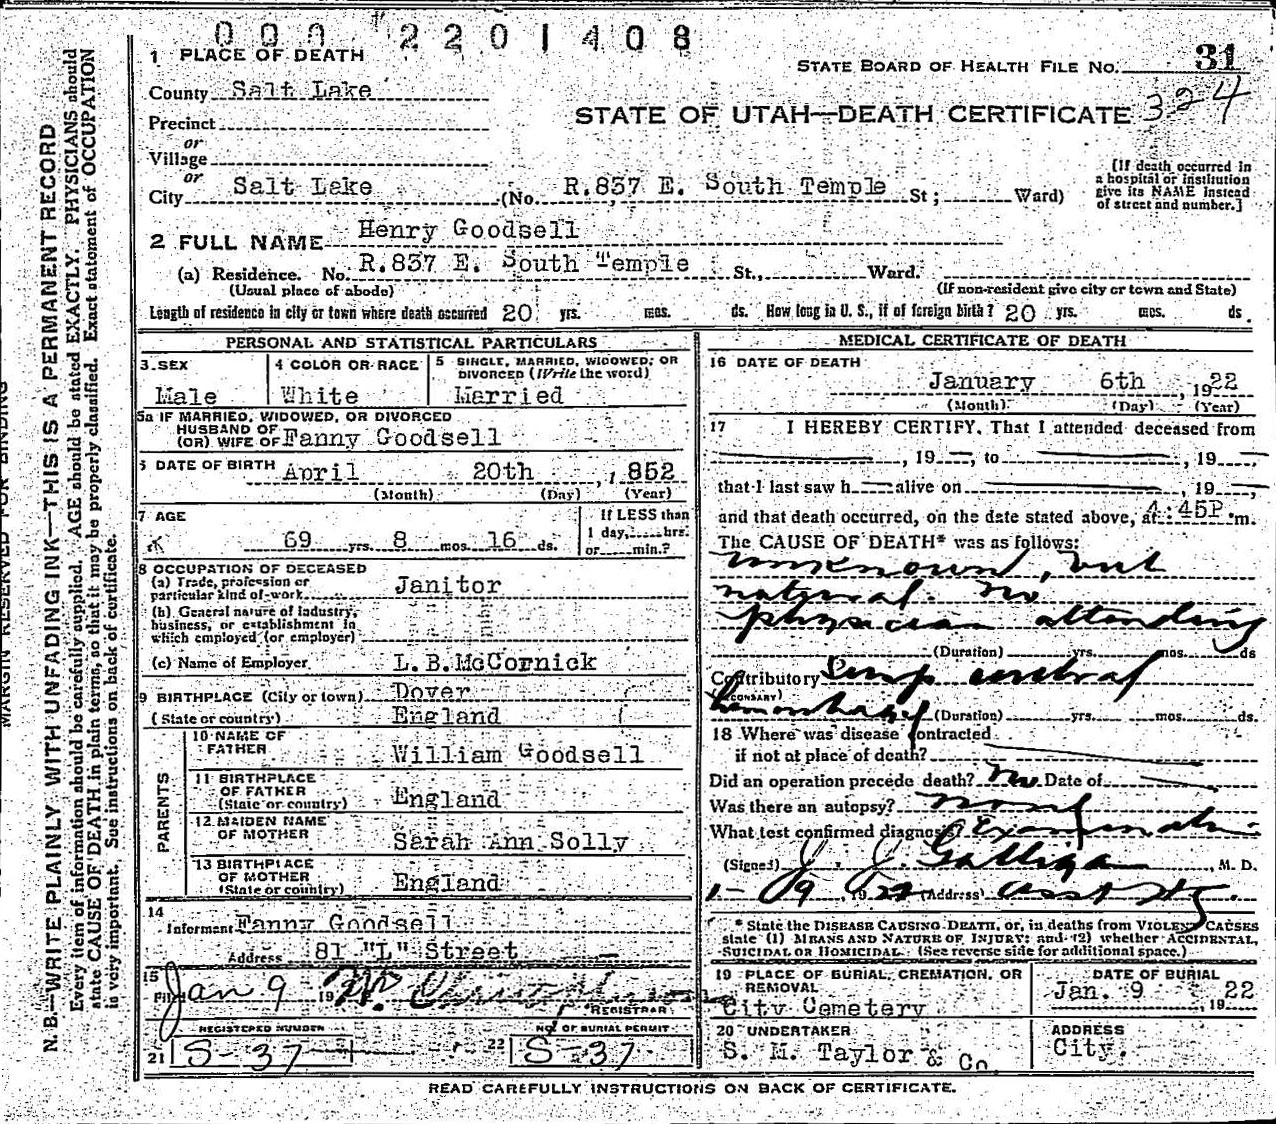 000 2201408
1 PLACE OF DEATH
STATE BOARD OF HEALTH FILE NO. 31
County Salt Lake
324
STATE OF UTAH—DEATH CERTIFICATE
Precinct
or
Village
or
City Salt Lake (No. R.837 E. South Temple St; Ward)
[If death occurred in
a hospital or institution
give its NAME instead
of street and number.]
2 FULL NAME Henry Goodsell
(a) Residence. No. R.837 E. South Temple St., Ward.
(Usual place of abode) (If non-resident give city or town and State)
Length of residence in city or town where death occurred 20 yrs. mos. ds. How long in U. S., if of foreign birth? 20 yrs. mos. ds.
PERSONAL AND STATISTICAL PARTICULARS
3 SEX
Male
4 COLOR OR RACE
White
5 SINGLE, MARRIED, WIDOWED, OR
DIVORCED (Write the word)
Married
5a IF MARRIED, WIDOWED, OR DIVORCED
HUSBAND OF
(OR) WIFE OF Fanny Goodsell
6 DATE OF BIRTH April 20th, 1852
(Month) (Day) (Year)
7 AGE
69 yrs. 8 mos. 16 ds.
If LESS than
1 day, hrs.
or min.?
8 OCCUPATION OF DECEASED
(a) Trade, profession or
particular kind of work Janitor
(b) General nature of industry,
business, or establishment in
which employed (or employer)
(c) Name of Employer L.B.McCornick
9 BIRTHPLACE (City or town) Dover
(State or country) England
PARENTS
10 NAME OF
FATHER William Goodsell
11 BIRTHPLACE
OF FATHER
(State or country) England
12 MAIDEN NAME
OF MOTHER Sarah Ann Solly
13 BIRTHPLACE
OF MOTHER
(State or country) England
14
Informant Fanny Goodsell
Address 81 "L" Street
15
Filed Jan 9 19
REGISTRAR
REGISTERED NUMBER
21 S-37
NO. OF BURIAL PERMIT
22 S-37
MEDICAL CERTIFICATE OF DEATH
16 DATE OF DEATH
January 6th, 1922
(Month) (Day) (Year)
17 I HEREBY CERTIFY, That I attended deceased from
, 19 , to , 19
that I last saw h alive on , 19
and that death occurred, on the date stated above, at 4:45P m.
The CAUSE OF DEATH* was as follows:
unknown, but
natural. No
physician attending
(Duration) yrs. mos. ds
Contributory cerebral
(SECONDARY) hemorrhage (Duration) yrs. mos. ds.
18 Where was disease contracted
if not at place of death?
Did an operation precede death? no Date of
Was there an autopsy? none
What test confirmed diagnosis
(Signed) J. J. Galligan, M. D.
1-9, 1922 (Address) asst
* State the DISEASE CAUSING DEATH, or, in deaths from VIOLENT CAUSES
state (1) MEANS AND NATURE OF INJURY; and (2) whether ACCIDENTAL,
SUICIDAL OR HOMICIDAL. (See reverse side for additional space.)
19 PLACE OF BURIAL, CREMATION, OR
REMOVAL
City Cemetery
DATE OF BURIAL
Jan. 9 1922
20 UNDERTAKER
S. M. Taylor & Co.
ADDRESS
City.
READ CAREFULLY INSTRUCTIONS ON BACK OF CERTIFICATE.
MARGIN RESERVED FOR BINDING
N. B.—WRITE PLAINLY WITH UNFADING INK—THIS IS A PERMANENT RECORD
Every item of information should be carefully supplied. AGE should be stated EXACTLY. PHYSICIANS should
state CAUSE OF DEATH in plain terms, so that it may be properly classified. Exact statement of OCCUPATION
is very important. See instructions on back of certificate.